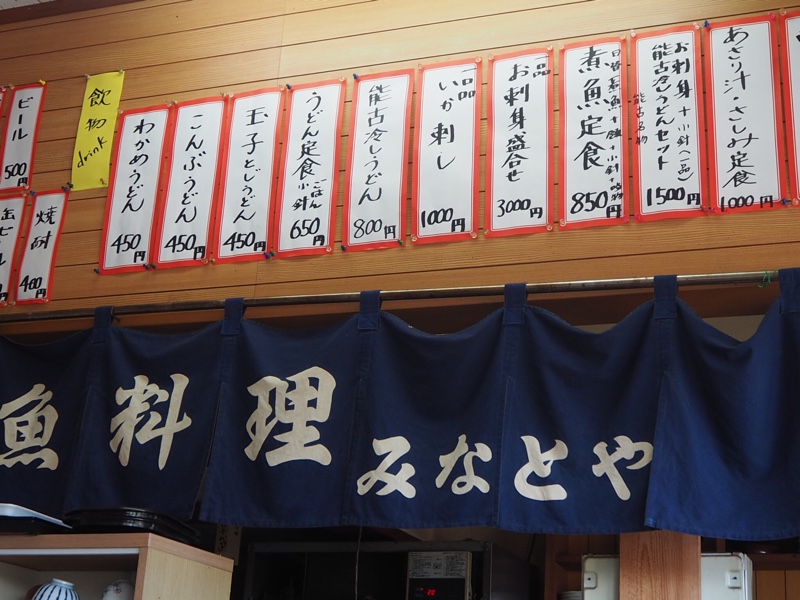 ビール
500円
焼酎
400円
飲物
drink
わかめうどん
450円
こんぶうどん
450円
玉子とじうどん
450円
うどん定食
ごはん
小針
650円
能古冷しうどん
800円
一品
いか刺し
1000円
一品
お刺身盛合せ
3000円
煮魚定食
850円
お刺身+小針(一品)
能古冷しうどんセット
能古名物
1500円
あさり汁・さしみ定食
1,000円
魚料理
みなとや